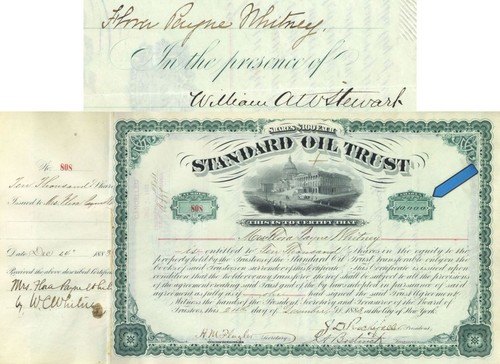 Flora Payne Whitney.
In the presence of
William A W Stewart
No 808
Ten Thousand Shares
Issued to Mrs Flora Payne W
Date Dec 24 1883
Received the above described Certificate
Mrs. Flora Payne Whit
by W C Whitney
SHARES $100 EACH
STANDARD OIL TRUST
808
10,000
THIS IS TO CERTIFY THAT
Mrs Flora Payne Whitney
is entitled to Ten Thousand shares in the equity to the
property held by the Trustees of the Standard Oil Trust transferable only on the
books of said Trustees on surrender of this Certificate. This Certificate is issued upon
condition that the holder or any transferee shall be subject to all the provisions
of the agreement creating said Trust and of the by laws adopted in pursuance of said
agreement as fully as if had signed the said Trust Agreement.
Witness the hands of the President Secretary and Treasurer of the Board of
Trustees, this 24th day of December 1883 at the City of New York.
H. M. Flagler Secretary
President